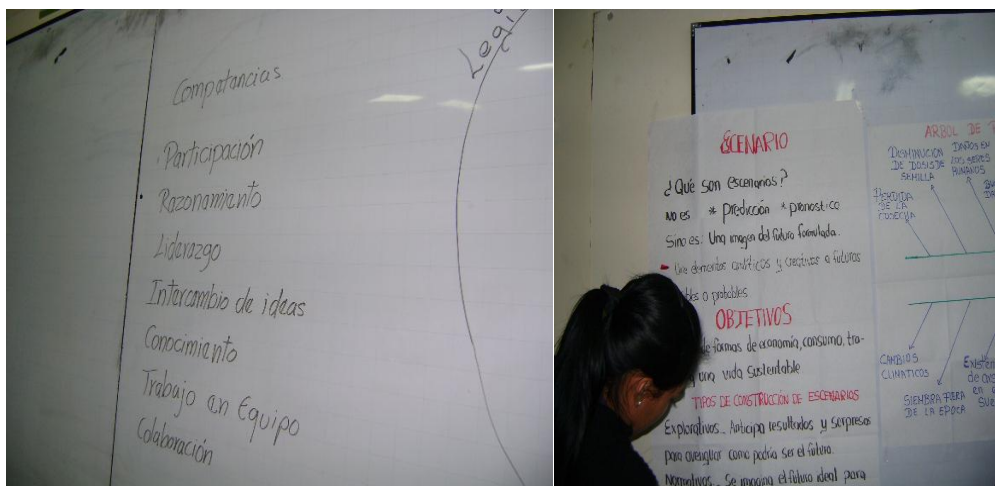 Competencias
Participación
Razonamiento
Liderazgo
Intercambio de ideas
Conocimiento
Trabajo en Equipo
Colaboración
ESCENARIO
¿Qué son escenarios?
No es * Predicción * pronostico
Sino es. Una imagen del futuro formulada.
Une elementos analíticos y creativos a futuros
o probables
OBJETIVOS
de formas de economía, consumo, tra-
una vida sustentable
TIPOS DE CONSTRUCCIÓN DE ESCENARIOS
Explorativos.. Anticipa resultados y sorpresas
para averiguar como podría ser el futuro.
Normativos.. Se imagina el futuro ideal para
ARBOL DE
DISMINUCION
DE DOSIS DE
SEMILLA
DAÑOS EN
LOS SERES
HUMANOS
PERDIDA
DE LA
COSECHA
CAMBIOS
CLIMATICOS
SIEMBRA FUERA
DE LA EPOCA